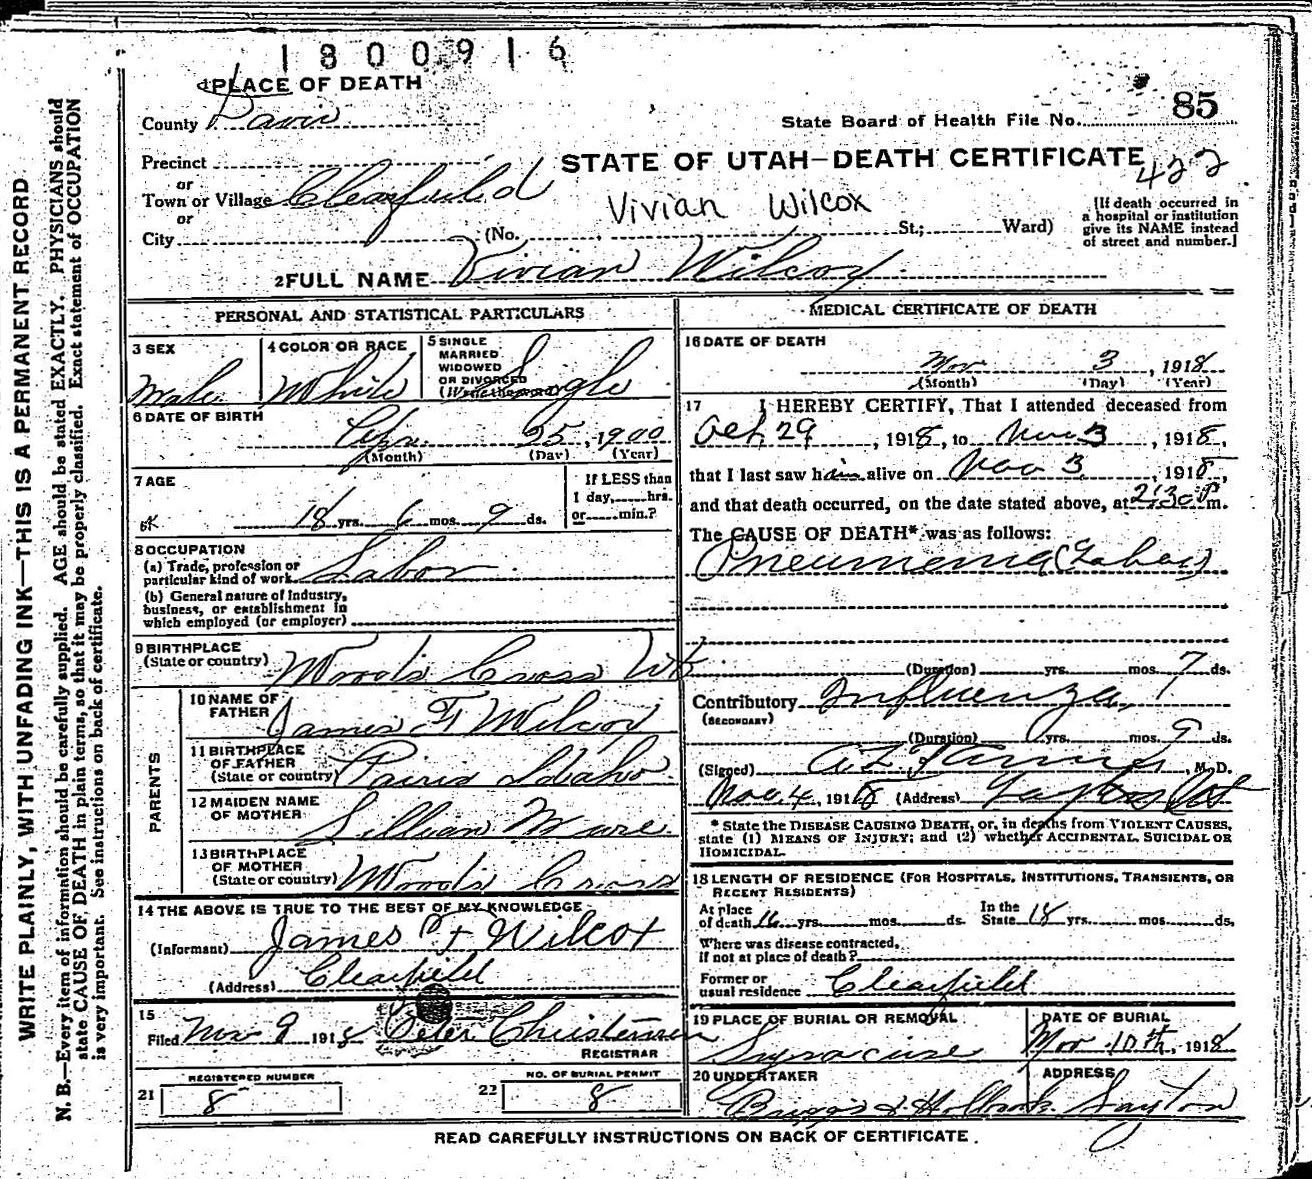 1800916
1 PLACE OF DEATH
County Davis
State Board of Health File No. 85
Precinct
STATE OF UTAH—DEATH CERTIFICATE
422
or
Town or Village Clearfield
or
Vivian Wilcox
City (No. St.; Ward)
[If death occurred in
a hospital or institution
give its NAME instead
of street and number.]
2 FULL NAME Vivian Wilcox
PERSONAL AND STATISTICAL PARTICULARS
3 SEX
Male
4 COLOR OR RACE
White
5 SINGLE
MARRIED
WIDOWED
OR DIVORCED
(Write the word)
Single
6 DATE OF BIRTH
Apr. 25, 1900
(Month) (Day) (Year)
7 AGE
18 yrs. 6 mos. 9 ds.
If LESS than
1 day, hrs.
or min.?
8 OCCUPATION
(a) Trade, profession or
particular kind of work Labor
(b) General nature of industry,
business, or establishment in
which employed (or employer)
9 BIRTHPLACE
(State or country) Woods Cross Ut
PARENTS
10 NAME OF
FATHER James F Wilcox
11 BIRTHPLACE
OF FATHER
(State or country) Paris Idaho
12 MAIDEN NAME
OF MOTHER Lillian Mure
13 BIRTHPLACE
OF MOTHER
(State or country) Woods Cross
14 THE ABOVE IS TRUE TO THE BEST OF MY KNOWLEDGE
(Informant) James F Wilcox
(Address) Clearfield
15
Filed Nov 9 1918 Peter Christensen
REGISTRAR
21 REGISTERED NUMBER
8
22 NO. OF BURIAL PERMIT
8
MEDICAL CERTIFICATE OF DEATH
16 DATE OF DEATH
Nov 3, 1918
(Month) (Day) (Year)
17 I HEREBY CERTIFY, That I attended deceased from
Oct 29, 1918, to Nov 3, 1918,
that I last saw him alive on Nov 3, 1918,
and that death occurred, on the date stated above, at 2:30 P.m.
The CAUSE OF DEATH* was as follows:
Pneumonia (Lobar)
(Duration) yrs. mos. 7 ds.
Contributory Influenza,
(SECONDARY)
(Duration) yrs. mos. 9 ds.
(Signed) A.Z. Tanner, M.D.
Nov. 4, 1918 (Address) Layton Ut
* State the DISEASE CAUSING DEATH, or, in deaths from VIOLENT CAUSES,
state (1) MEANS OF INJURY; and (2) whether ACCIDENTAL, SUICIDAL OR
HOMICIDAL.
18 LENGTH OF RESIDENCE (FOR HOSPITALS, INSTITUTIONS, TRANSIENTS, OR
RECENT RESIDENTS)
At place
of death 16 yrs. mos. ds.
In the
State 18 yrs. mos. ds.
Where was disease contracted,
if not at place of death?
Former or
usual residence Clearfield
19 PLACE OF BURIAL OR REMOVAL
Syracuse
DATE OF BURIAL
Nov 10th, 1918
20 UNDERTAKER
Briggs & Holbrook
ADDRESS
Layton
READ CAREFULLY INSTRUCTIONS ON BACK OF CERTIFICATE.
WRITE PLAINLY, WITH UNFADING INK—THIS IS A PERMANENT RECORD
N. B.—Every item of information should be carefully supplied. AGE should be stated EXACTLY. PHYSICIANS should
state CAUSE OF DEATH in plain terms, so that it may be properly classified. Exact statement of OCCUPATION
is very important. See instructions on back of certificate.